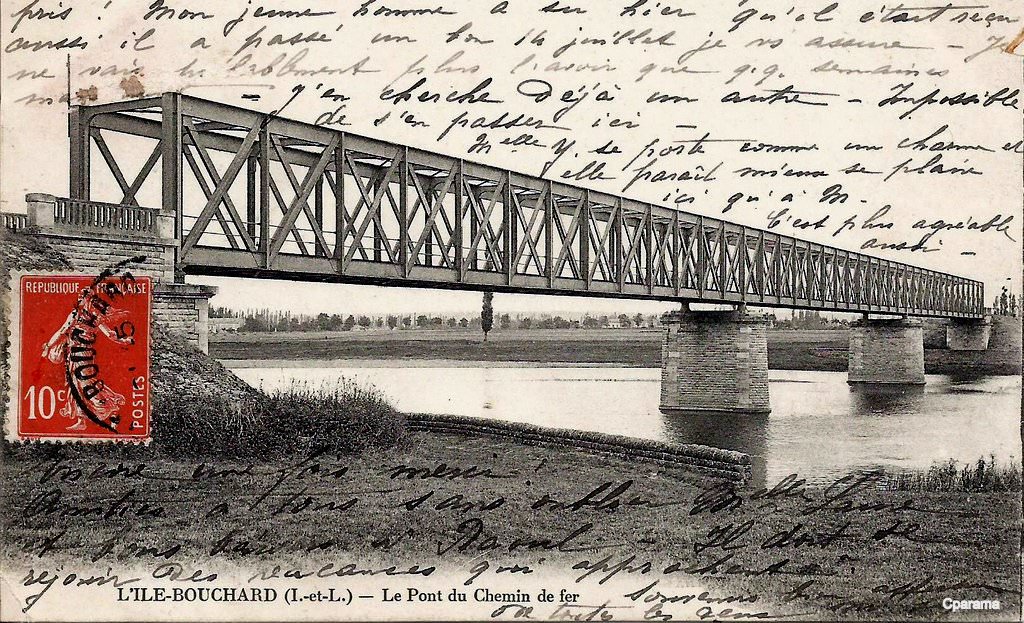 pris ! Mon jeune homme a su hier qu'il était reçu
aussi il a passé un bon 14 juillet je vs assure - Je
ne vais probablement plus l'avoir que q.q. semaines
J'en cherche Déjà un autre - Impossible
de s'en passer ici -
Melle Y. se porte comme un charme et
elle paraît mieux se plaire
ici qu'à M.
C'est plus agréable
aussi -
REPUBLIQUE FRANÇAISE
10c
POSTES
BOUCHARD
Encore une fois merci !
Amitiés à tous sans oublier Melle
et bons baisers à Raoul - Il doit se
réjouir Des vacances qui approchent
L'ILE-BOUCHARD (I.-et-L.) — Le Pont du Chemin de fer
Souvenirs
de toutes les
Cparama